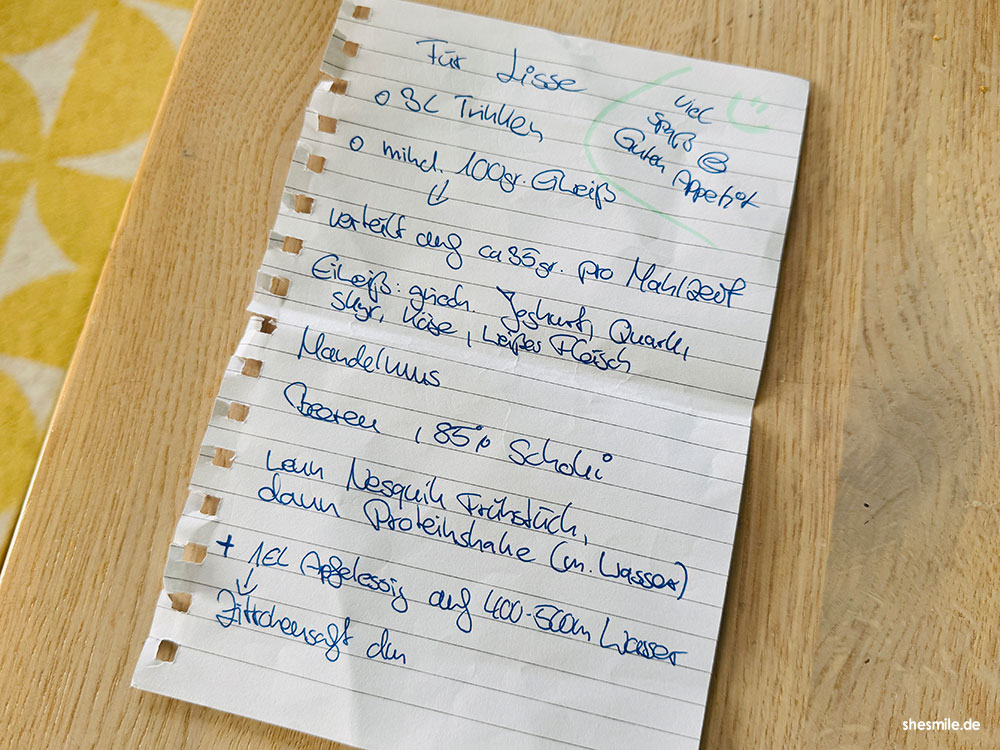 Für Lisse
Viel
Spaß
Guten Appetit
o 3L Trinken
o mind. 100gr. Eiweiß
↓
verteilt auf ca 35gr. pro Mahlzeit
Eiweiß: griech. Joghurt, Quark,
Skyr, Käse, weißes Fleisch
Mandelmus
Beeren, 85% Schoki
wenn Nesquik Frühstück,
dann Proteinshake (m. Wasser)
+ 1EL Apfelessig auf 400-500m Wasser
↓
shesmile.de